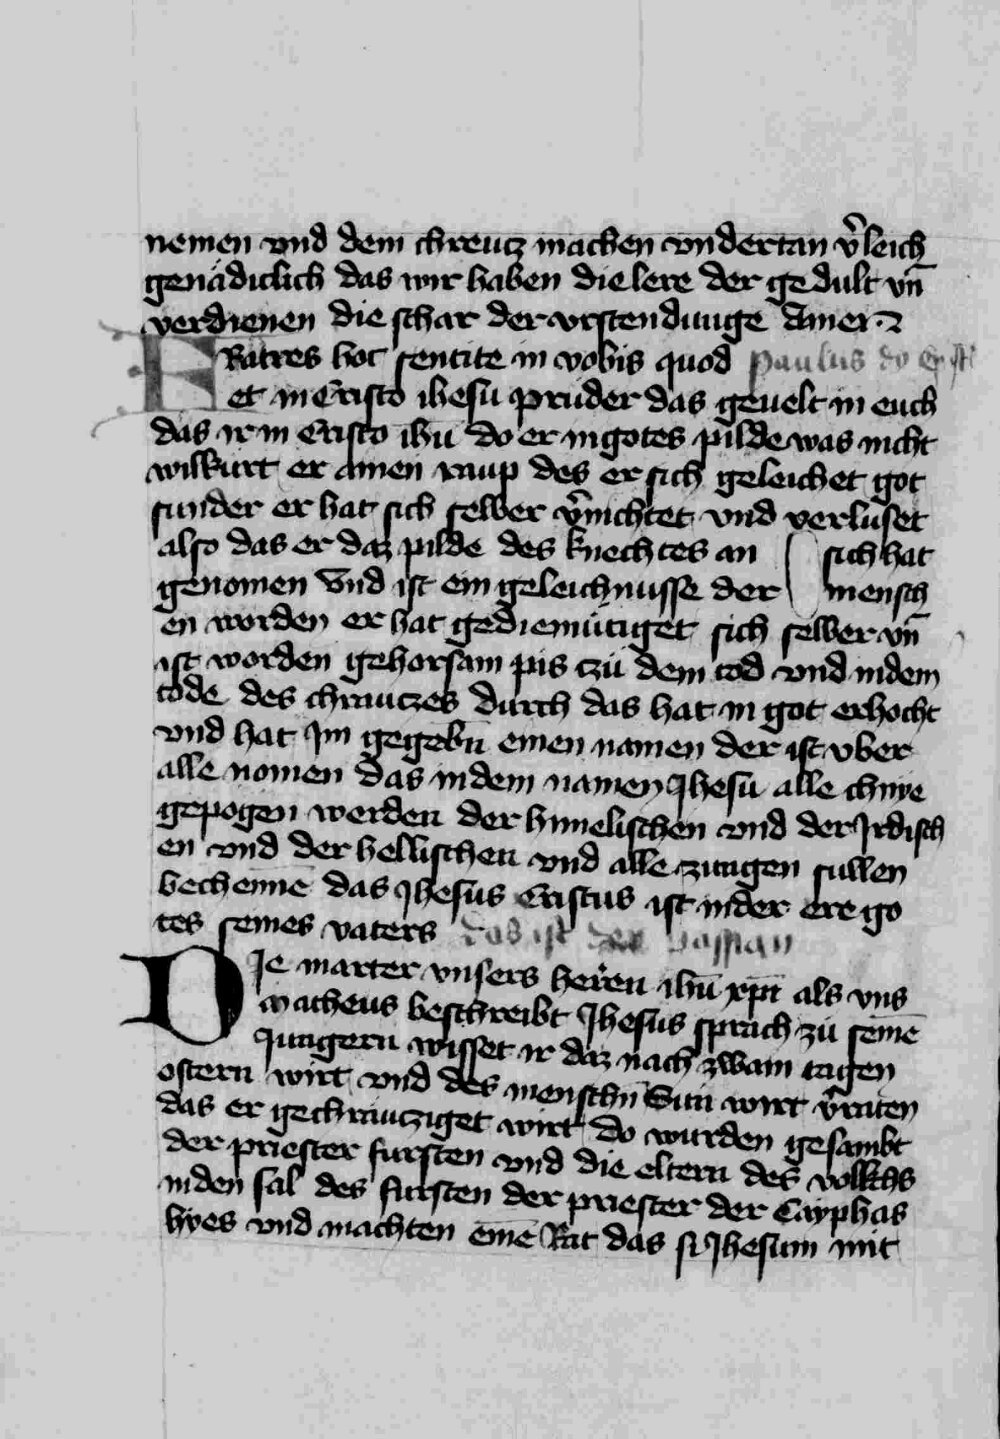 nemen vnd dem chreucz machen vndertan v̄leich
genädiclich das wir haben die lere der gedult vn̄
verdienen die schar der vrstendunge Amen
FRatres hoc sentite in vobis quod Paulus
et in Cristo ihesu pruder das geuelt in euch
das ir in Cristo ihū do er in gotes pilde was nicht
wilkurt er ainen raup des er sich geleichet got
sunder er hat sich selber v̄nichtet vnd verluset
also das er daz pilde des knechtes an sich hat
genomen Vnd ist ein geleichnusse der mensch
en worden er hat gediemütiget sich selber vn̄
ist worden gehorsam pis czü dem tod vnd in dem
tode des chrauczes durch das hat in got erhocht
vnd hat Im gegebn̄ einen namen der ist vber
alle nomen das in dem namen Ihesu alle chnye
gepogen werden der himelischen vnd der Irdisch
en vnd der hellischen vnd alle zungen sullen
bechennē das Ihesus Cristus ist in der ere go
tes seines vaters das ist der passian
DIe marter vnsers herren ihū xp̄i als vns
Matheus beschreibt Ihesus sprach zü seinē
Jungern wisset ir daz nach zwain tagen
ostern wirt vnd des menschn̄ Sun wirt v̄raten
das er gechräucziget wirt do wurden gesambt
der priester fursten vnd die eltern des volkchs
in den sal des fursten der priester der Cayphas
hyes vnd machten einē Rat das si Ihesum mit